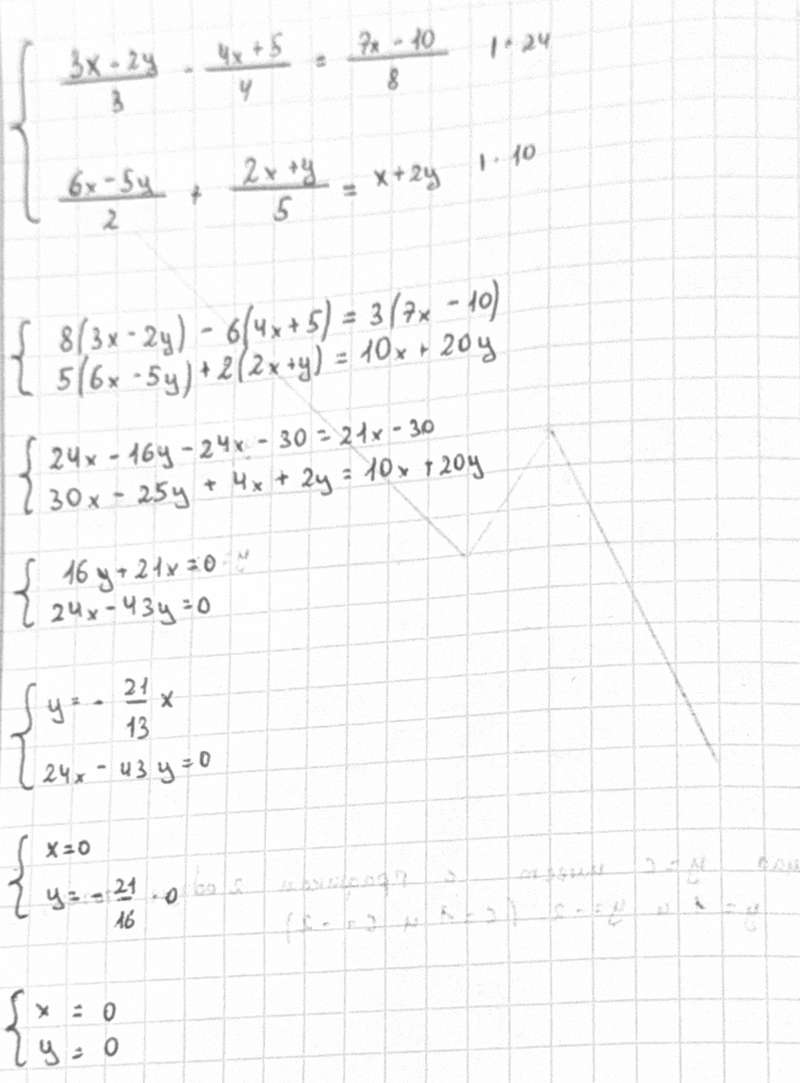 { (3x - 2y)/3 - (4x + 5)/4 = (7x - 10)/8 | · 24
(6x - 5y)/2 + (2x + y)/5 = x + 2y | · 10
{ 8(3x - 2y) - 6(4x + 5) = 3(7x - 10)
5(6x - 5y) + 2(2x + y) = 10x + 20y
{ 24x - 16y - 24x - 30 = 21x - 30
30x - 25y + 4x + 2y = 10x + 20y
{ 16y + 21x = 0
24x - 43y = 0
{ y = - 21/13 x
24x - 43y = 0
{ x = 0
y = - 21/16 · 0
{ x = 0
y = 0